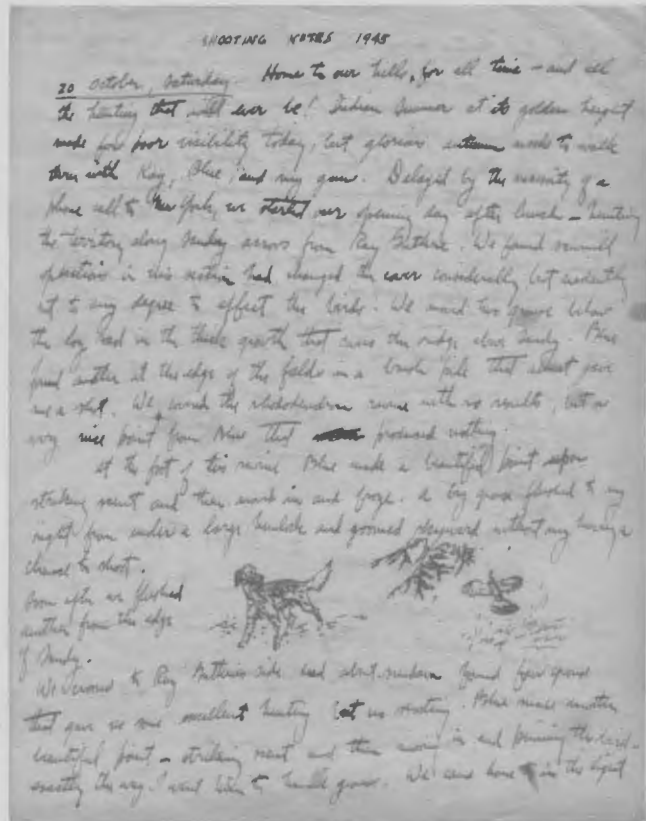 SHOOTING NOTES 1945
20 October, Saturday. Home to our hills, for all time – and all
the hunting that will ever be! Indian Summer at its golden height
made for poor visibility today, but glorious autumn woods to walk
thru with Kay, Blue, and my gun. Delayed by the necessity of a
phone call to New York, we started our opening day after lunch – hunting
the territory along Sandy across from Ray Guthrie. We found sawmill
operations in this section had changed the cover considerably but evidently
not to any degree to affect the birds. We moved two grouse below
the log road in the thick growth that covers the ridge above Sandy. Blue
found another at the edge of the fields in a brush pile that almost gave
me a shot. We the rhododendron ravine with no results, but a
very nice point from Blue that produced nothing.
At the foot of this ravine Blue made a beautiful point upon
striking scent and then moved in and froze. A big grouse flushed to my
right from under a large hemlock and zoomed skyward without my having a
chance to shoot.
Soon after we flushed
another from the edge
of Sandy.
We crossed to Ray Guthrie's side and found four grouse
that gave us some excellent hunting but no shooting. Blue made another
beautiful point – striking scent and then moving in and pinning the bird –
exactly the way I want him to handle grouse. We came home in the light